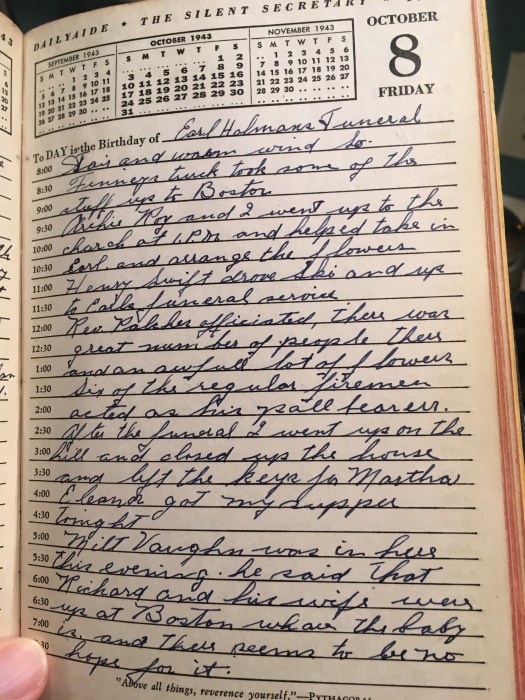 DAILYAIDE ★ THE SILENT SECRETARY
SEPTEMBER 1943
S M T W T F S
1 2 3 4
5 6 7 8 9 10 11
12 13 14 15 16 17 18
19 20 21 22 23 24 25
26 27 28 29 30
OCTOBER 1943
S M T W T F S
1 2
3 4 5 6 7 8 9
10 11 12 13 14 15 16
17 18 19 20 21 22 23
24 25 26 27 28 29 30
31
NOVEMBER 1943
S M T W T F S
1 2 3 4 5 6
7 8 9 10 11 12 13
14 15 16 17 18 19 20
21 22 23 24 25 26 27
28 29 30
OCTOBER
8
FRIDAY
To DAY is the Birthday of Earl Holmans Funeral
8:00 Fair and warm wind So.
8:30 Finneys truck took some of the
9:00 stuff up to Boston
9:30 Archie Roy and I went up to the
10:00 church at 1 P.M. and helped take in
10:30 Earl. and arrange the flowers
11:00 Henry Swift drove Ski and up
11:30 to Earls funeral service
12:00 Rev. officiated, there was
12:30 great number of people there
1:00 and an awfull lot of flowers
1:30 Six of the regular firemen
2:00 acted as his pall bearers.
2:30 After the funeral I went up on the
3:00 hill and closed up the house
3:30 and left the keys for Martha
4:00 Eleanor got my supper
4:30 tonight
5:00 Milt Vaughn was in here
5:30 this evening. he said that
6:00 Richard and his wife were
6:30 up at Boston whare the baby
7:00 is, and there seems to be no
30 hope for it.
"Above all things, reverence yourself."—PYTHAGORAS